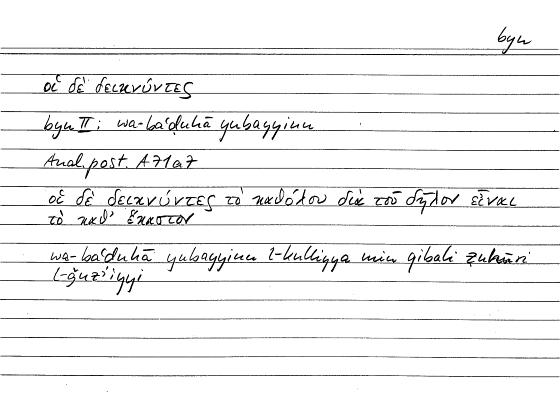 byn
οἱ δὲ δεικνύντες
byn II; wa-baʿḍuhā yubayyinu
Anal. post. A71a7
οἱ δὲ δεικνύντες τὸ καθόλου διὰ τοῦ δῆλον εἶναι
τὸ καθ’ ἕκαστον
wa-baʿḍuhā yubayyinu l-kulliyya min qibali ẓuhūri
l-ǧuzʾiyyi